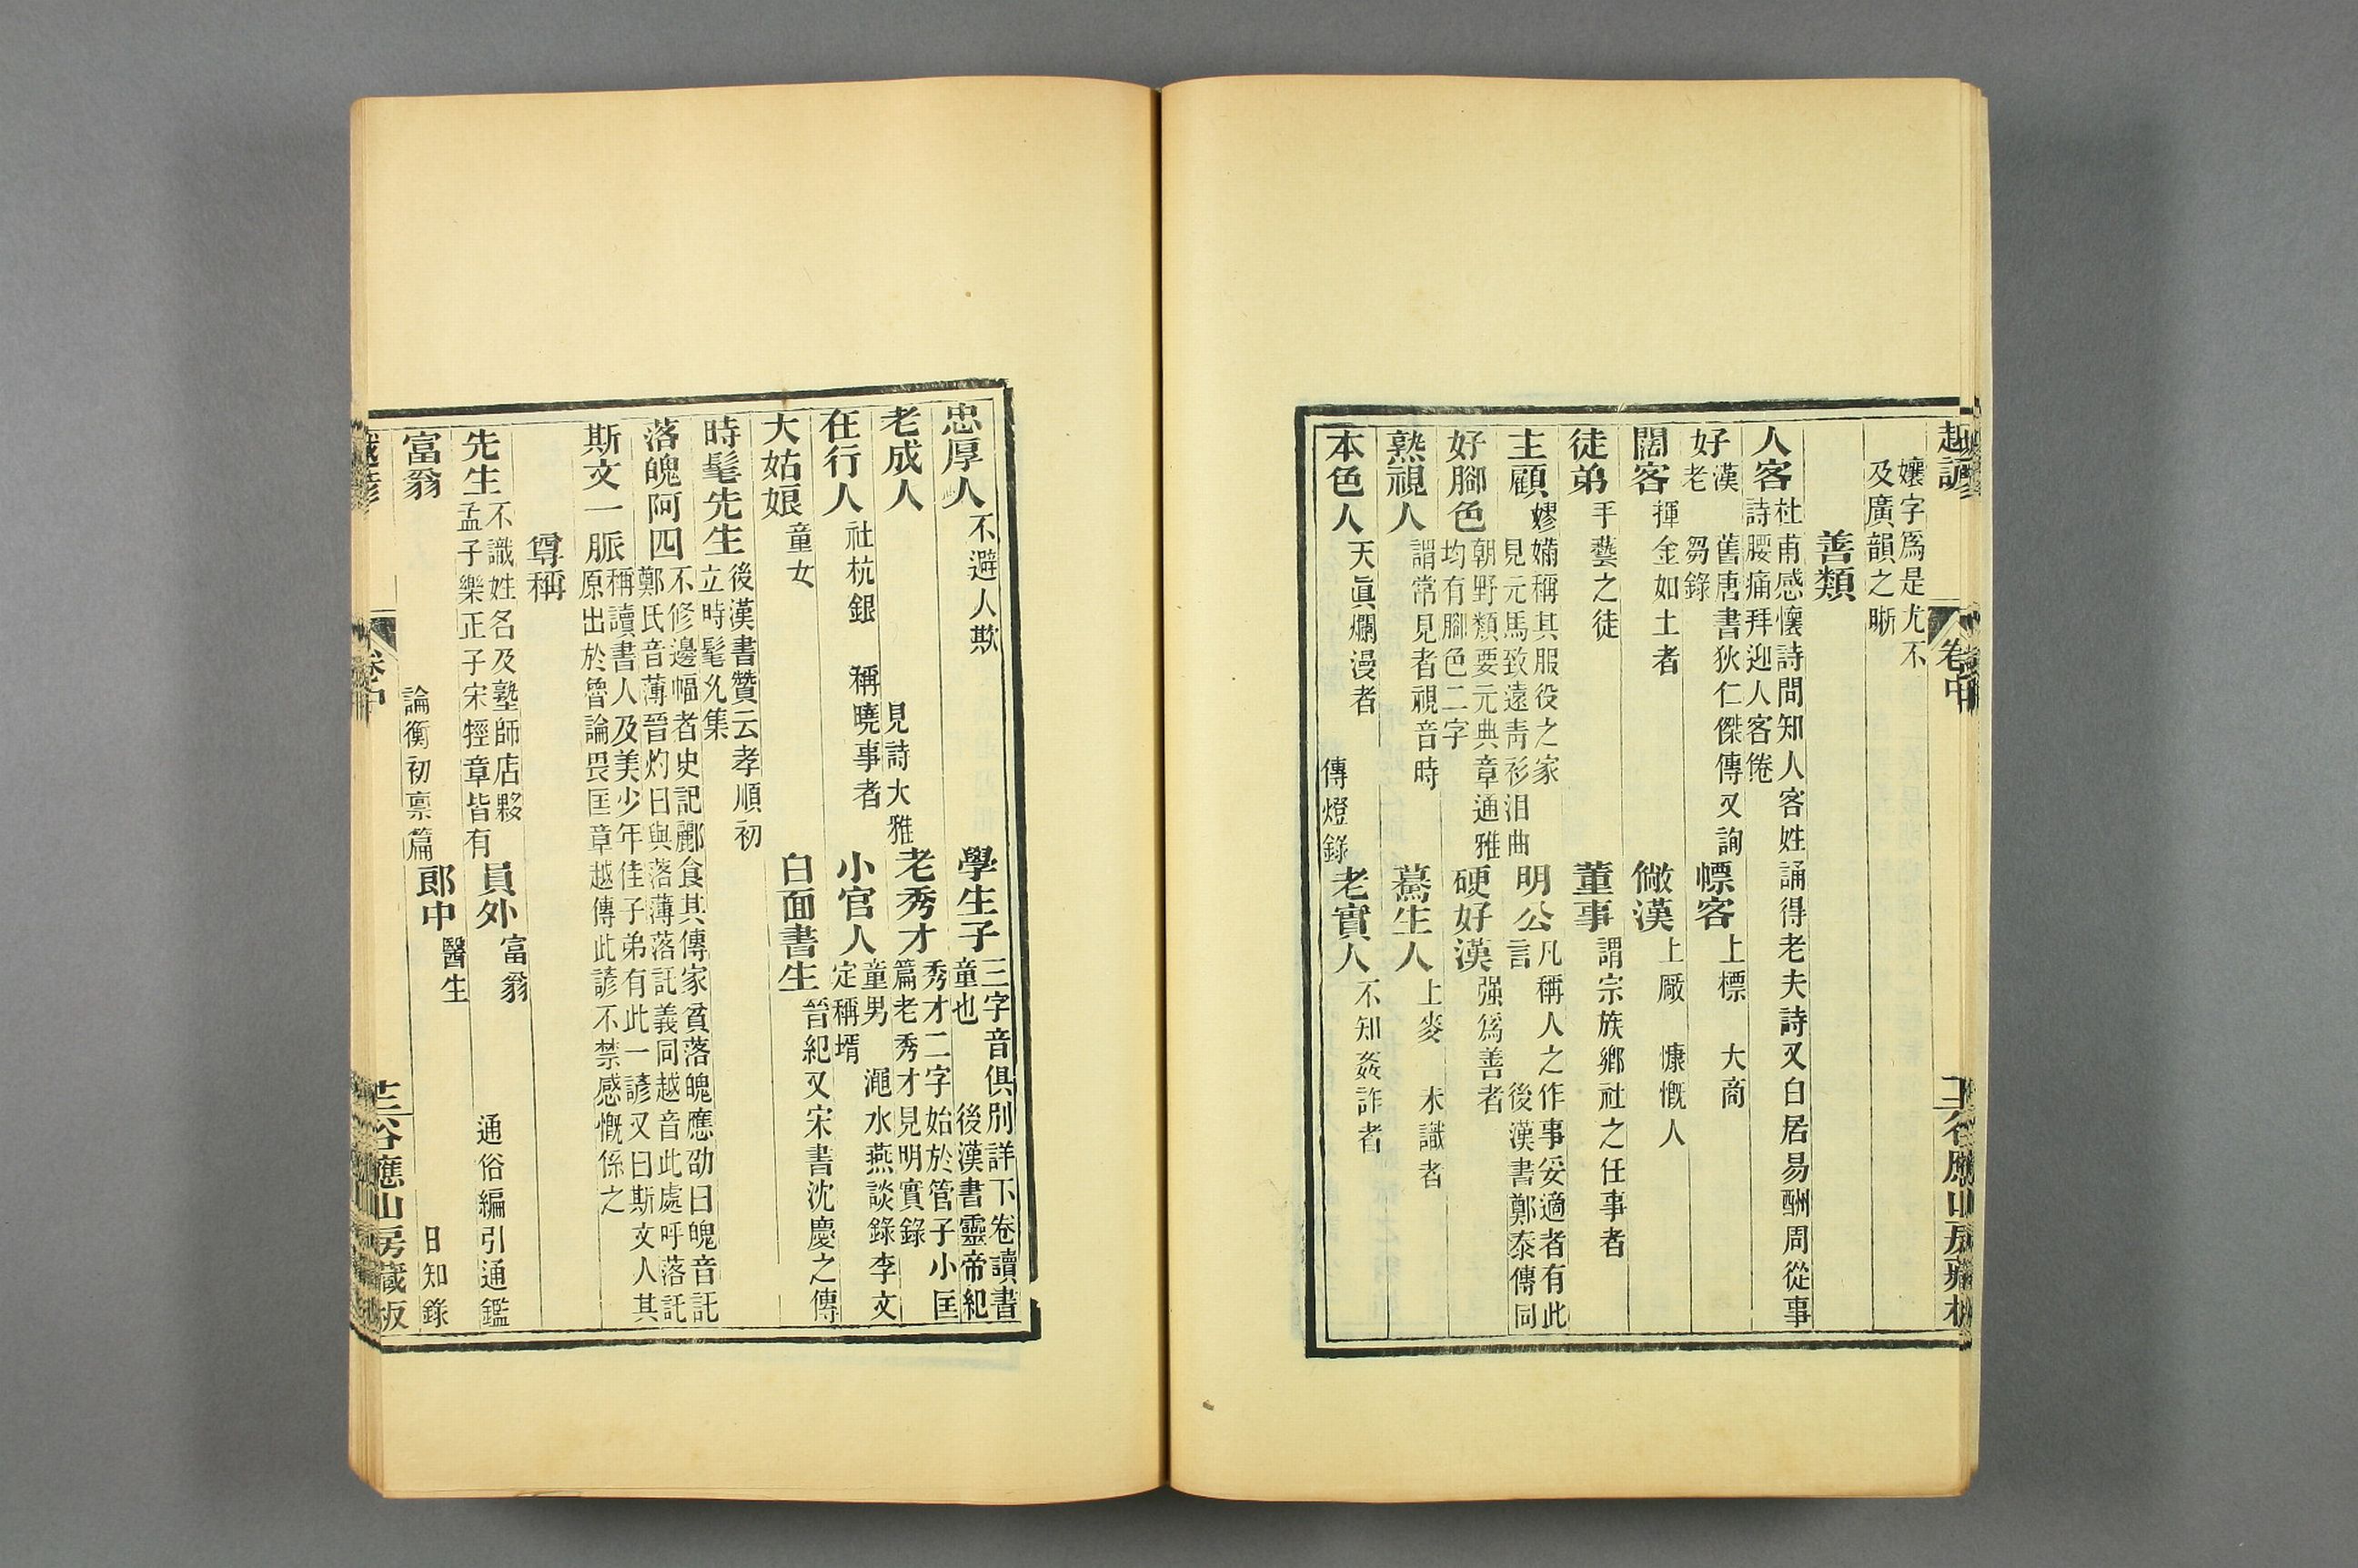 越諺 卷中 谷應山房藏板
孃字爲是尤不
及廣韻之晰
善類
人客 杜甫感懷詩問知人客姓誦得老夫詩又白居易酬周從事
詩腰痛拜迎人客倦
好 漢老 舊唐書狄仁傑傳又詢
芻錄 幖客 上標 大商
闊客 揮金如土者 僘漢 上厰 慷慨人
徒弟 手藝之徒 董事 謂宗族鄉社之任事者
主顧 嫪 嫡稱其服役之家
見元馬致遠靑衫泪曲 明公 凡稱人之作事妥適者有此
言 後漢書鄭泰傳同
好腳色 朝野類要元典章通雅
均有腳色二字 硬好漢 强爲善者
熟視人 謂常見者視音時 驀生人 上麥 未識者
本色人 天眞爛漫者 傳燈錄 老實人 不知姦詐者
忠厚人 不避人欺 學生子 三字音俱別詳下卷讀書
童也 後漢書靈帝紀
老成人 見詩大雅 老秀才 秀才二字始於管子小匡
篇老秀才見明實錄
在行人 社杭銀 稱曉事者 小官人 童男 澠水燕談錄李文
定稱壻
大姑娘 童女 白面書生 晉紀又宋書沈慶之傳
時髦先生 後漢書贊云孝順初
立時髦㕥集
落魄阿四 不修邊幅者史記酈食其傳家貧落魄應劭曰魄音託
鄭氏音薄晉灼曰與落薄落託義同越音此處呼落託
斯文一脈 稱讀書人及美少年佳子弟有此一諺又曰斯文人其
原出於魯論畏匡章越傳此諺不禁感慨係之
尊稱
先生 不識姓名及塾師店夥
孟子樂正子宋牼章皆有 員外 富翁 通俗編引通鑑
富翁 論衡初禀篇 郎中 醫生 日知錄
越諺 卷中 谷應山房藏板